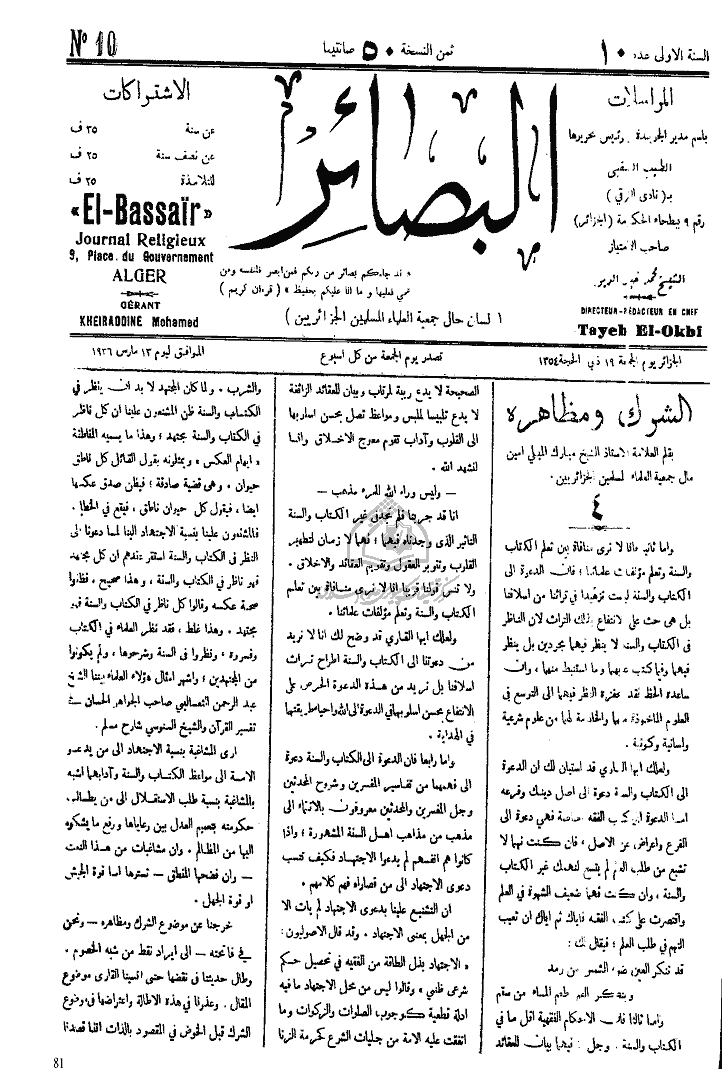 السنة الاولى عدد ١٠
ثمن النسخة ٥٠ صانتيما
Nº 10
المراسلات
باسم مدير الجريدة ورئيس تحريرها
الطيب العقبي
بـ(نادى الترقي)
رقم ٩ ببطحاء الحكومة (الجزائر)
صاحب الامتياز
الشيخ محمد خير الدين
DIRECTEUR-RÉDACTEUR EN CHEF
Tayeb El-Okbi
البصائر
« قد جاءكم بصائر من ربكم فمن ابصر فلنفسه ومن
عمي فعليها وما انا عليكم بحفيظ » (قرءان كريم)
(لسان حال جمعية العلماء المسلمين الجزائريين)
الاشتراكات
عن سنة ٣٥ ف
عن نصف سنة ٢٥ ف
للتلامذة ٢٥ ف
«El-Bassaïr»
Journal Religieux
9, Place du Gouvernement
ALGER
GÉRANT
KHEIRADDINE Mohamed
الجزائر يوم الجمعة ١٩ ذي الحجة ١٣٥٤
تصدر يوم الجمعة من كل اسبوع
الموافق ليوم ١٣ مارس ١٩٣٦
الشرك ومظاهره
بقلم العلامة الاستاذ الشيخ مبارك الميلي امين
مال جمعية العلماء المسلمين الجزائريين.
٤
واما ثانيا فانا لا نرى منافاة بين تعلم الكتاب
والسنة وتعلم مؤلفات علمائنا؛ فان الدعوة الى
الكتاب والسنة ليست تزهيدا في تراثنا من اسلافنا
بل هى حث على الانتفاع بذلك التراث لان الناظر
فى الكتاب والسنة لا ينظر فيهما بجردين بل ينظر
فيهما وفيما كتب عليهما وما استنبط منهما، وان
ساعده الحظ لقد يضطره النظر فيهما الى التوسع في
العلوم المأخوذة منهما والخادمة لهما من علوم شرعية
ولسانية وكونية.
ولعلك ايها القاري قد استبان لك ان الدعوة
الى الكتاب والسنة دعوة الى اصل دينك وفرعه
اما الدعوة الى كتب الفقه خاصة فهى دعوة الى
الفرع واعراض عن الاصل، فان كنت نهما لا
تشبع من طلب العلم لم يشبع نهمك غير الكتاب
والسنة، وان كنت فيهما ضعيف الشهوة في العلم
واقتصرت على كتب الفقه فاياك ثم اياك ان تعيب
النهم في طلب العلم؛ فيقال لك:
قد تنكر العين ضوء الشمس من رمد
وينكر الفم طعم الماء من سقم
واما ثالثا فان الاحكام الفقهية اقل ما فى
الكتاب والسنة. وجل فيهما بيان للعقائد
الصحيحة لا يدع ريبة لمرتاب وبيان للعقائد الزائفة
لا يدع تلبيسا لملبس ومواعظ تصل بحسن اسلوبها
الى القلوب وآداب تقوم معوج الاخلاق وانا
لنشهد الله.
— وليس وراء الله للمرء مذهب —
انا قد جربنا فلم نجد فى غير الكتاب والسنة
التاثير الذى وجدناه فيهما؛ فهما لازمان لتطهير
القلوب وتنوير العقول وتقويم العقائد والاخلاق.
ولا تنس قولنا قريبا انا لا نرى منافاة بين تعلم
الكتاب والسنة وتعلم مؤلفات علمائنا.
ولعلك ايها القاري قد وضح لك انا لا نريد
من دعوتنا الى الكتاب والسنة اطراح تراث
اسلافنا بل نريد من هذه الدعوة الحرص على
الانتفاع بحسن اسلوبهافي الدعوة الى الله واحياطريقتها
في الهداية.
واما رابعا فان الدعوة الى الكتاب والسنة دعوة
الى فهمهما من تفاسير المفسرين وشروح المحدثين
وجل المفسرين والمحدثين معروفون بالانتماء الى
مذهب من مذاهب اهل السنة المشهورة؛ واذا
كانوا هم انفسهم لم يدعوا الاجتهاد فكيف تنسب
دعوى الاجتهاد الى من قصاراه فهم كلامهم.
ان التشنيع علينا بدعوى الاجتهاد لم يات الا
من الجهل بمعنى الاجتهاد. وقد قال الاصوليون:
« الاجتهاد بذل الطاقة من الفقيه في تحصيل حكم
شرعى ظني » وقالوا ليس من محل الاجتهاد ما فيه
ادلة قطعية كوجوب الصلوات والزكوات وما
اتفقت عليه الامة من جليات الشرع كحرمة الزنا
والشرب. ولما كان المجتهد لا بد ان ينظر في
الكتاب والسنة ظن المشنعون علينا ان كل ناظر
في الكتاب والسنة مجتهد؛ وهذا ما يسميه المناطقة
« ايهام العكس » ويمثلونه بقول القائل كل ناطق
حيوان. وهى قضية صادقة؛ فيظن صدق عكسها
ايضا، فيقول كل حيوان ناطق، فيقع في الخطإ.
فالمشنعون علينا بنسبة الاجتهاد الينا لما دعونا الى
النظر فى الكتاب والسنة استقر عندهم ان كل مجتهد
فهو ناظر في الكتاب والسنة، وهذا صحيح. فظنوا
صحة عكسه وقالوا كل ناظر فى الكتاب والسنة فهو
مجتهد. وهذا غلط، فقد نظر العلماء في الكتاب
وفسروه، ونظروا فى السنة وشرحوها، ولم يكونوا
من المجتهدين؛ واشهر امثال هؤلاء العلماء بيننا الشيخ
عبد الرحمن الثعالبي صاحب الجواهر الحسان في
تفسير القرآن والشيخ السنوسي شارح مسلم.
ارى المشاغبة بنسبة الاجتهاد الى من يدعو
الامة الى مواعظ الكتاب والسنة وآدابهما اشبه
بالمشاغبة بنسبة طلب الاستقلال الى من يطالب
حكومته بتعميم العدل بين رعاياها ورفع ما يشكوه
اليها من المظالم. وان مشاغبات من هذا النعت
— وان فضحها المنطق — تسترها اما قوة الجيش
او قوة الجهل.
خرجنا عن موضوع الشرك ومظاهره — ونحن
في فاتحته — الى ايراد نقط من شبه الخصوم.
وطال حديثنا في نقضها حتى انسينا القارى موضوع
المقال. وعذرنا في هذه الاطالة واعتراضها في وضوع
الشرك قبل الخوض في المقصود بالذات اننا قصدنا
81